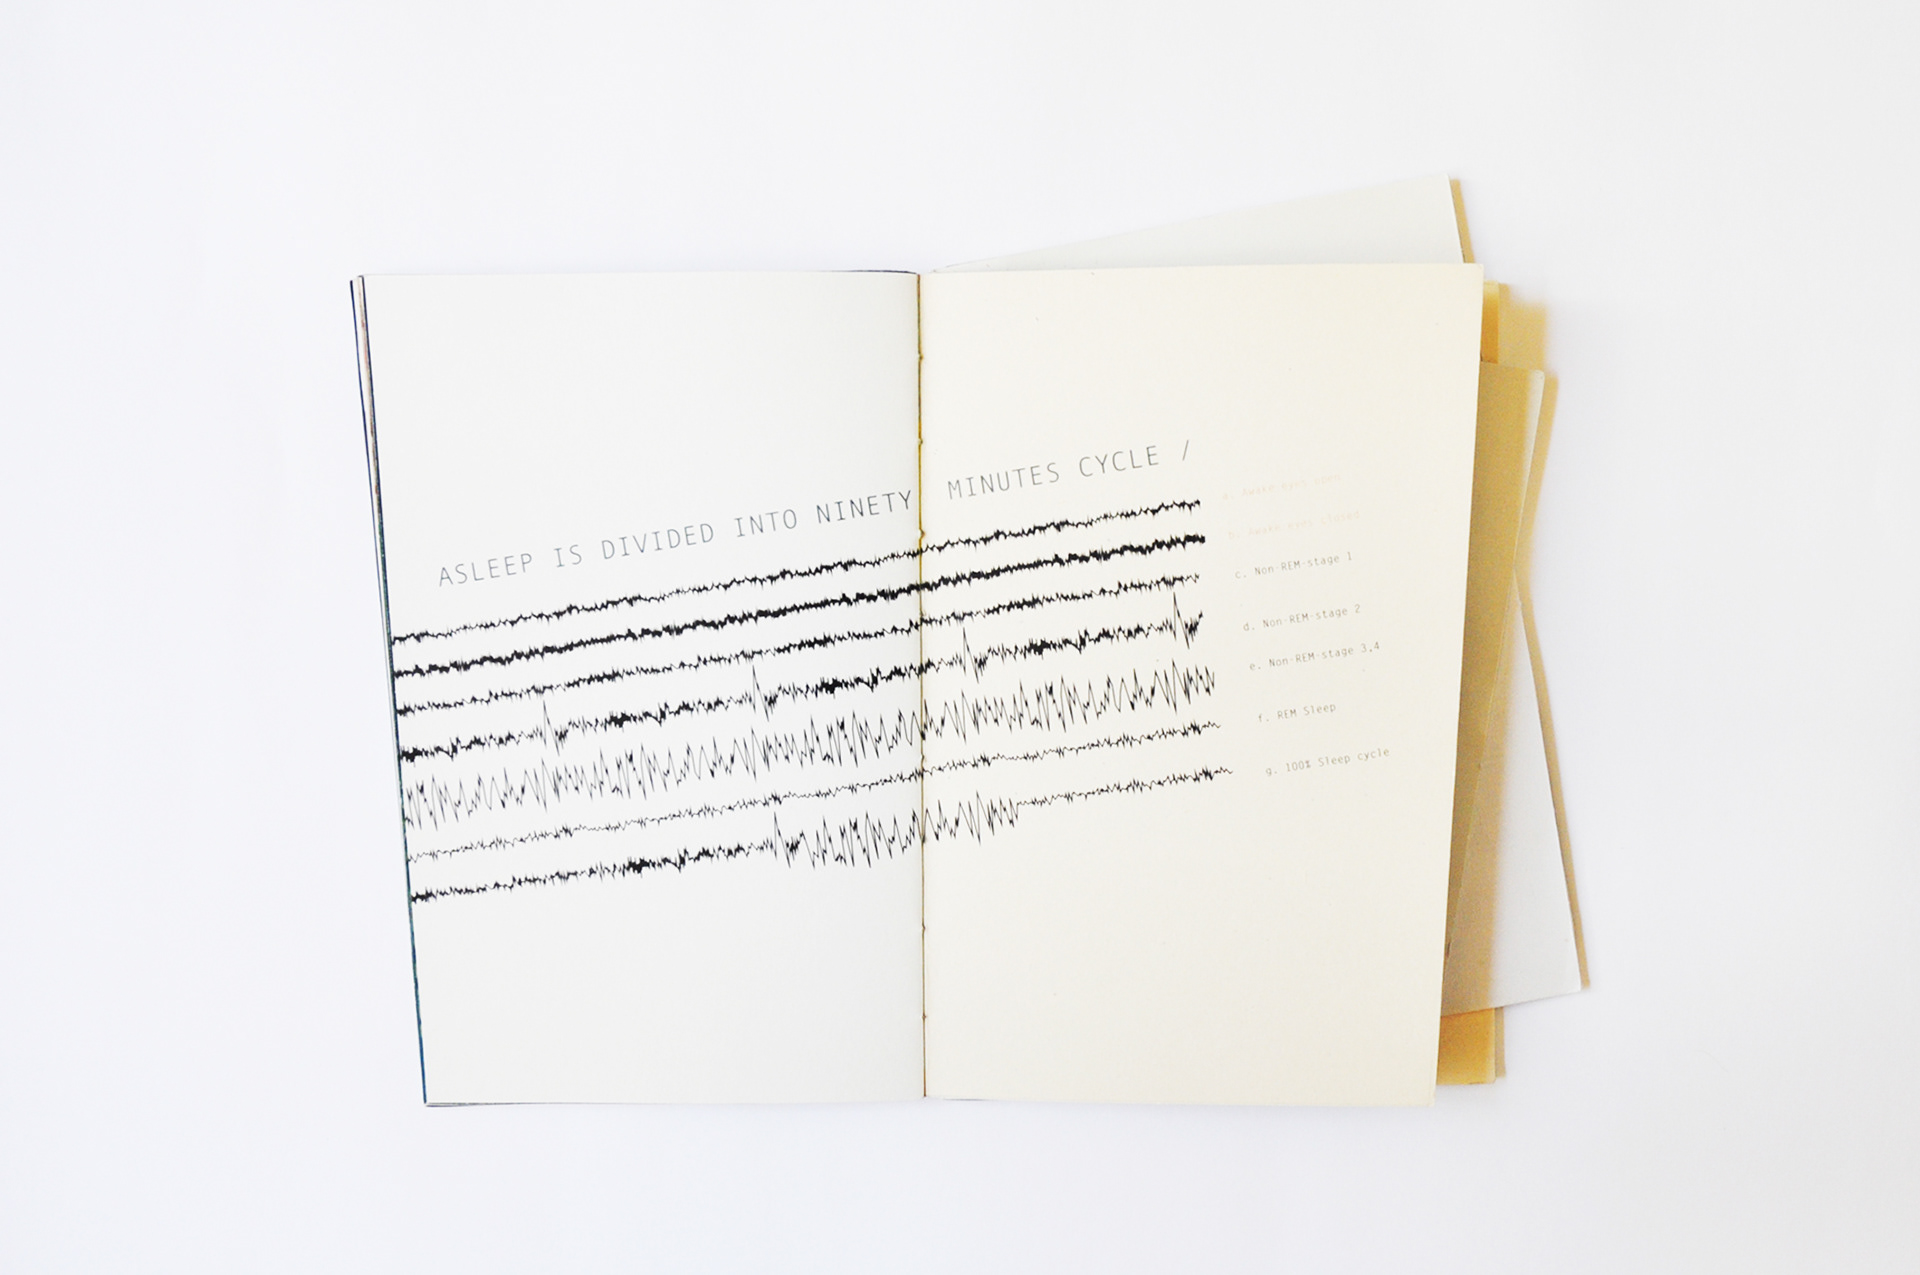 ASLEEP IS DIVIDED INTO NINETY MINUTES CYCLE /
a. Awake eyes open
b. Awake eyes closed
c. Non-REM-stage 1
d. Non-REM-stage 2
e. Non-REM-stage 3,4
f. REM Sleep
g. 100% Sleep cycle